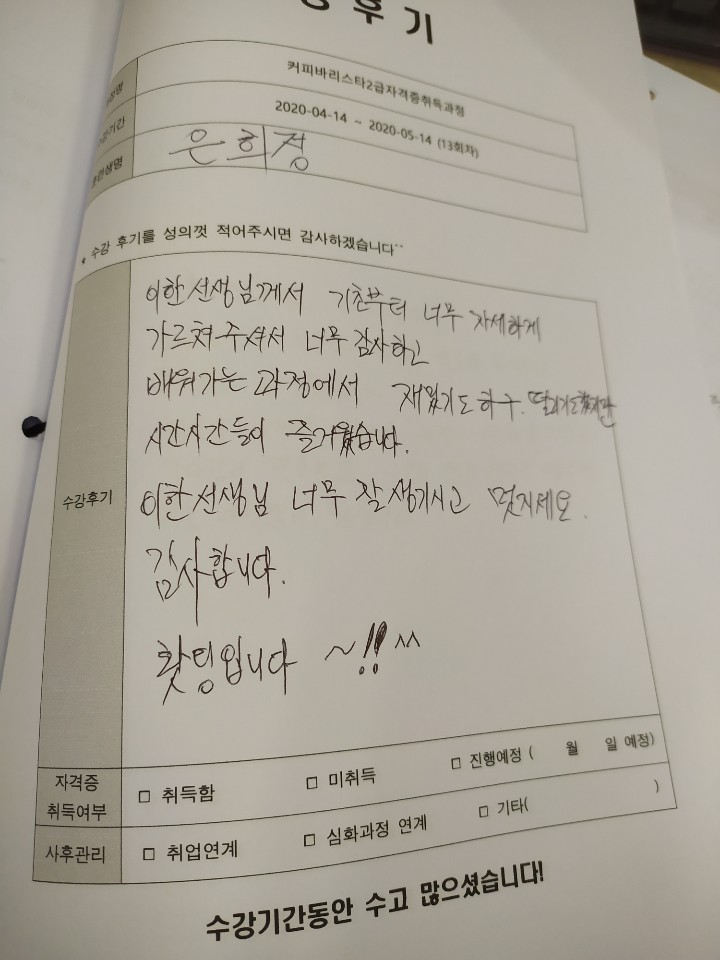 강후기
과정명 커피바리스타2급자격증취득과정
수강기간 2020-04-14 ~ 2020-05-14 (13회차)
훈련생명 은희정
* 수강 후기를 성의껏 적어주시면 감사하겠습니다^^
수강후기
이한선생님께서 기초부터 너무 자세하게
가르쳐주셔서 너무 감사하고
배워가는 과정에서 재밌기도하구. 떨리기도했지만
시간시간들이 즐거웠습니다.
이한선생님 너무 잘생기시고 멋지세요.
감사합니다.
홧팅입니다 ~!! ^^
자격증
취득여부 □ 취득함 □ 미취득 □ 진행예정 ( 월 일 예정)
사후관리 □ 취업연계 □ 심화과정 연계 □ 기타( )
수강기간동안 수고 많으셨습니다!